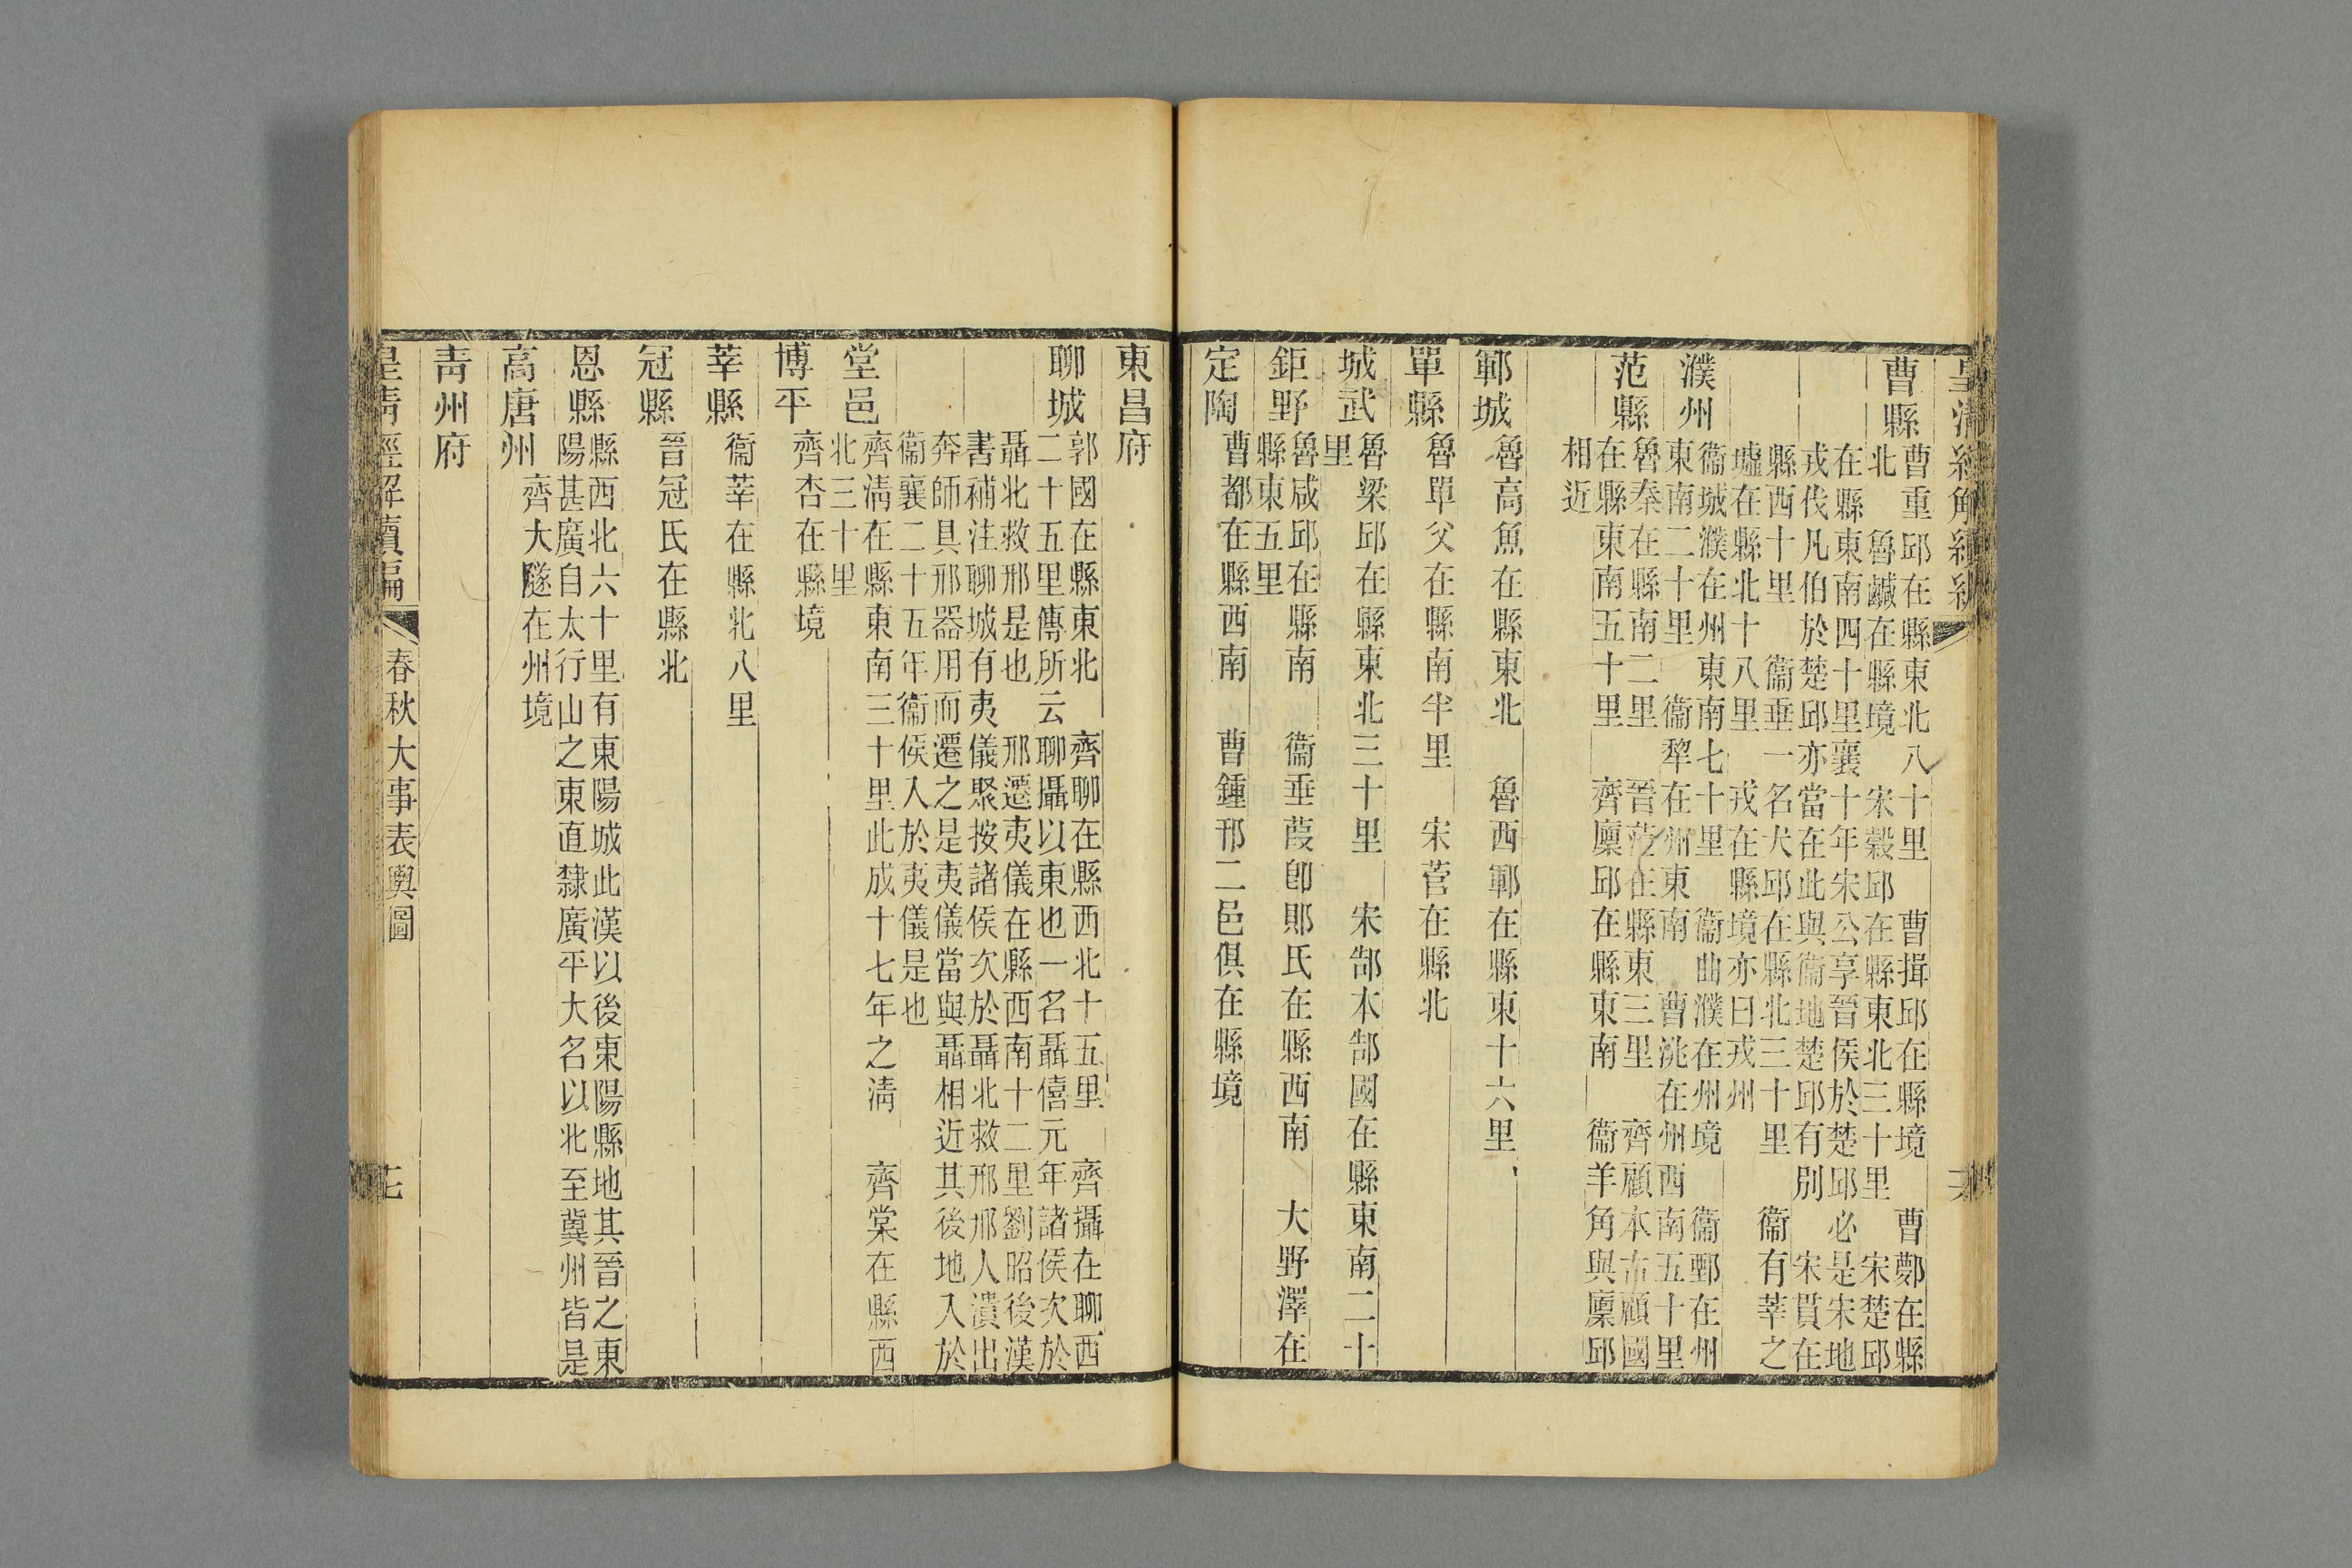 曹縣
曹重邱在縣東北八十里　曹揖邱在縣境　曹鄸在縣
北　魯鹹在縣境　宋穀邱在縣東北三十里　宋楚邱
在縣東南四十里襄十年宋公享晉侯於楚邱必是宋地
戎伐凡伯於楚邱亦當在此與衞地楚邱有別　宋貰在
縣西十里　衞垂一名犬邱在縣北三十里　衞有莘之
墟在縣北十八里　戎在縣境亦曰戎州
濮州
衞城濮在州東南七十里　衞曲濮在州境　衞鄄在州
東南二十里　衞犂在州東南　曹洮在州西南五十里
范縣
魯秦在縣南二里　晉范在縣東三里　齊顧本古顧國
在縣東南五十里　齊廩邱在縣東南　衞羊角與廩邱
相近
鄆城
魯高魚在縣東北　魯西鄆在縣東十六里
單縣
魯單父在縣南半里　宋菅在縣北
城武
魯梁邱在縣東北三十里　宋郜本郜國在縣東南二十
里
鉅野
魯咸邱在縣南　衞垂葭卽郹氏在縣西南　大野澤在
縣東五里
定陶
曹都在縣西南　曹鍾邘二邑俱在縣境
東昌府
聊城
郭國在縣東北　齊聊在縣西北十五里　齊攝在聊西
二十五里傳所云聊攝以東也一名聶僖元年諸侯次於
聶北救邢是也　邢遷夷儀在縣西南十二里劉昭後漢
書補注聊城有夷儀聚按諸侯次於聶北救邢邢人潰出
奔師具邢器用而遷之是夷儀當與聶相近其後地入於
衞襄二十五年衞侯入於夷儀是也
堂邑
齊淸在縣東南三十里此成十七年之淸　齊棠在縣西
北三十里
博平
齊杏在縣境
莘縣
衞莘在縣北八里
冠縣
晉冠氏在縣北
恩縣
縣西北六十里有東陽城此漢以後東陽縣地其晉之東
陽甚廣自太行山之東直隸廣平大名以北至冀州皆是
高唐州
齊大隧在州境
靑州府
皇淸經解續編
春秋大事表輿圖